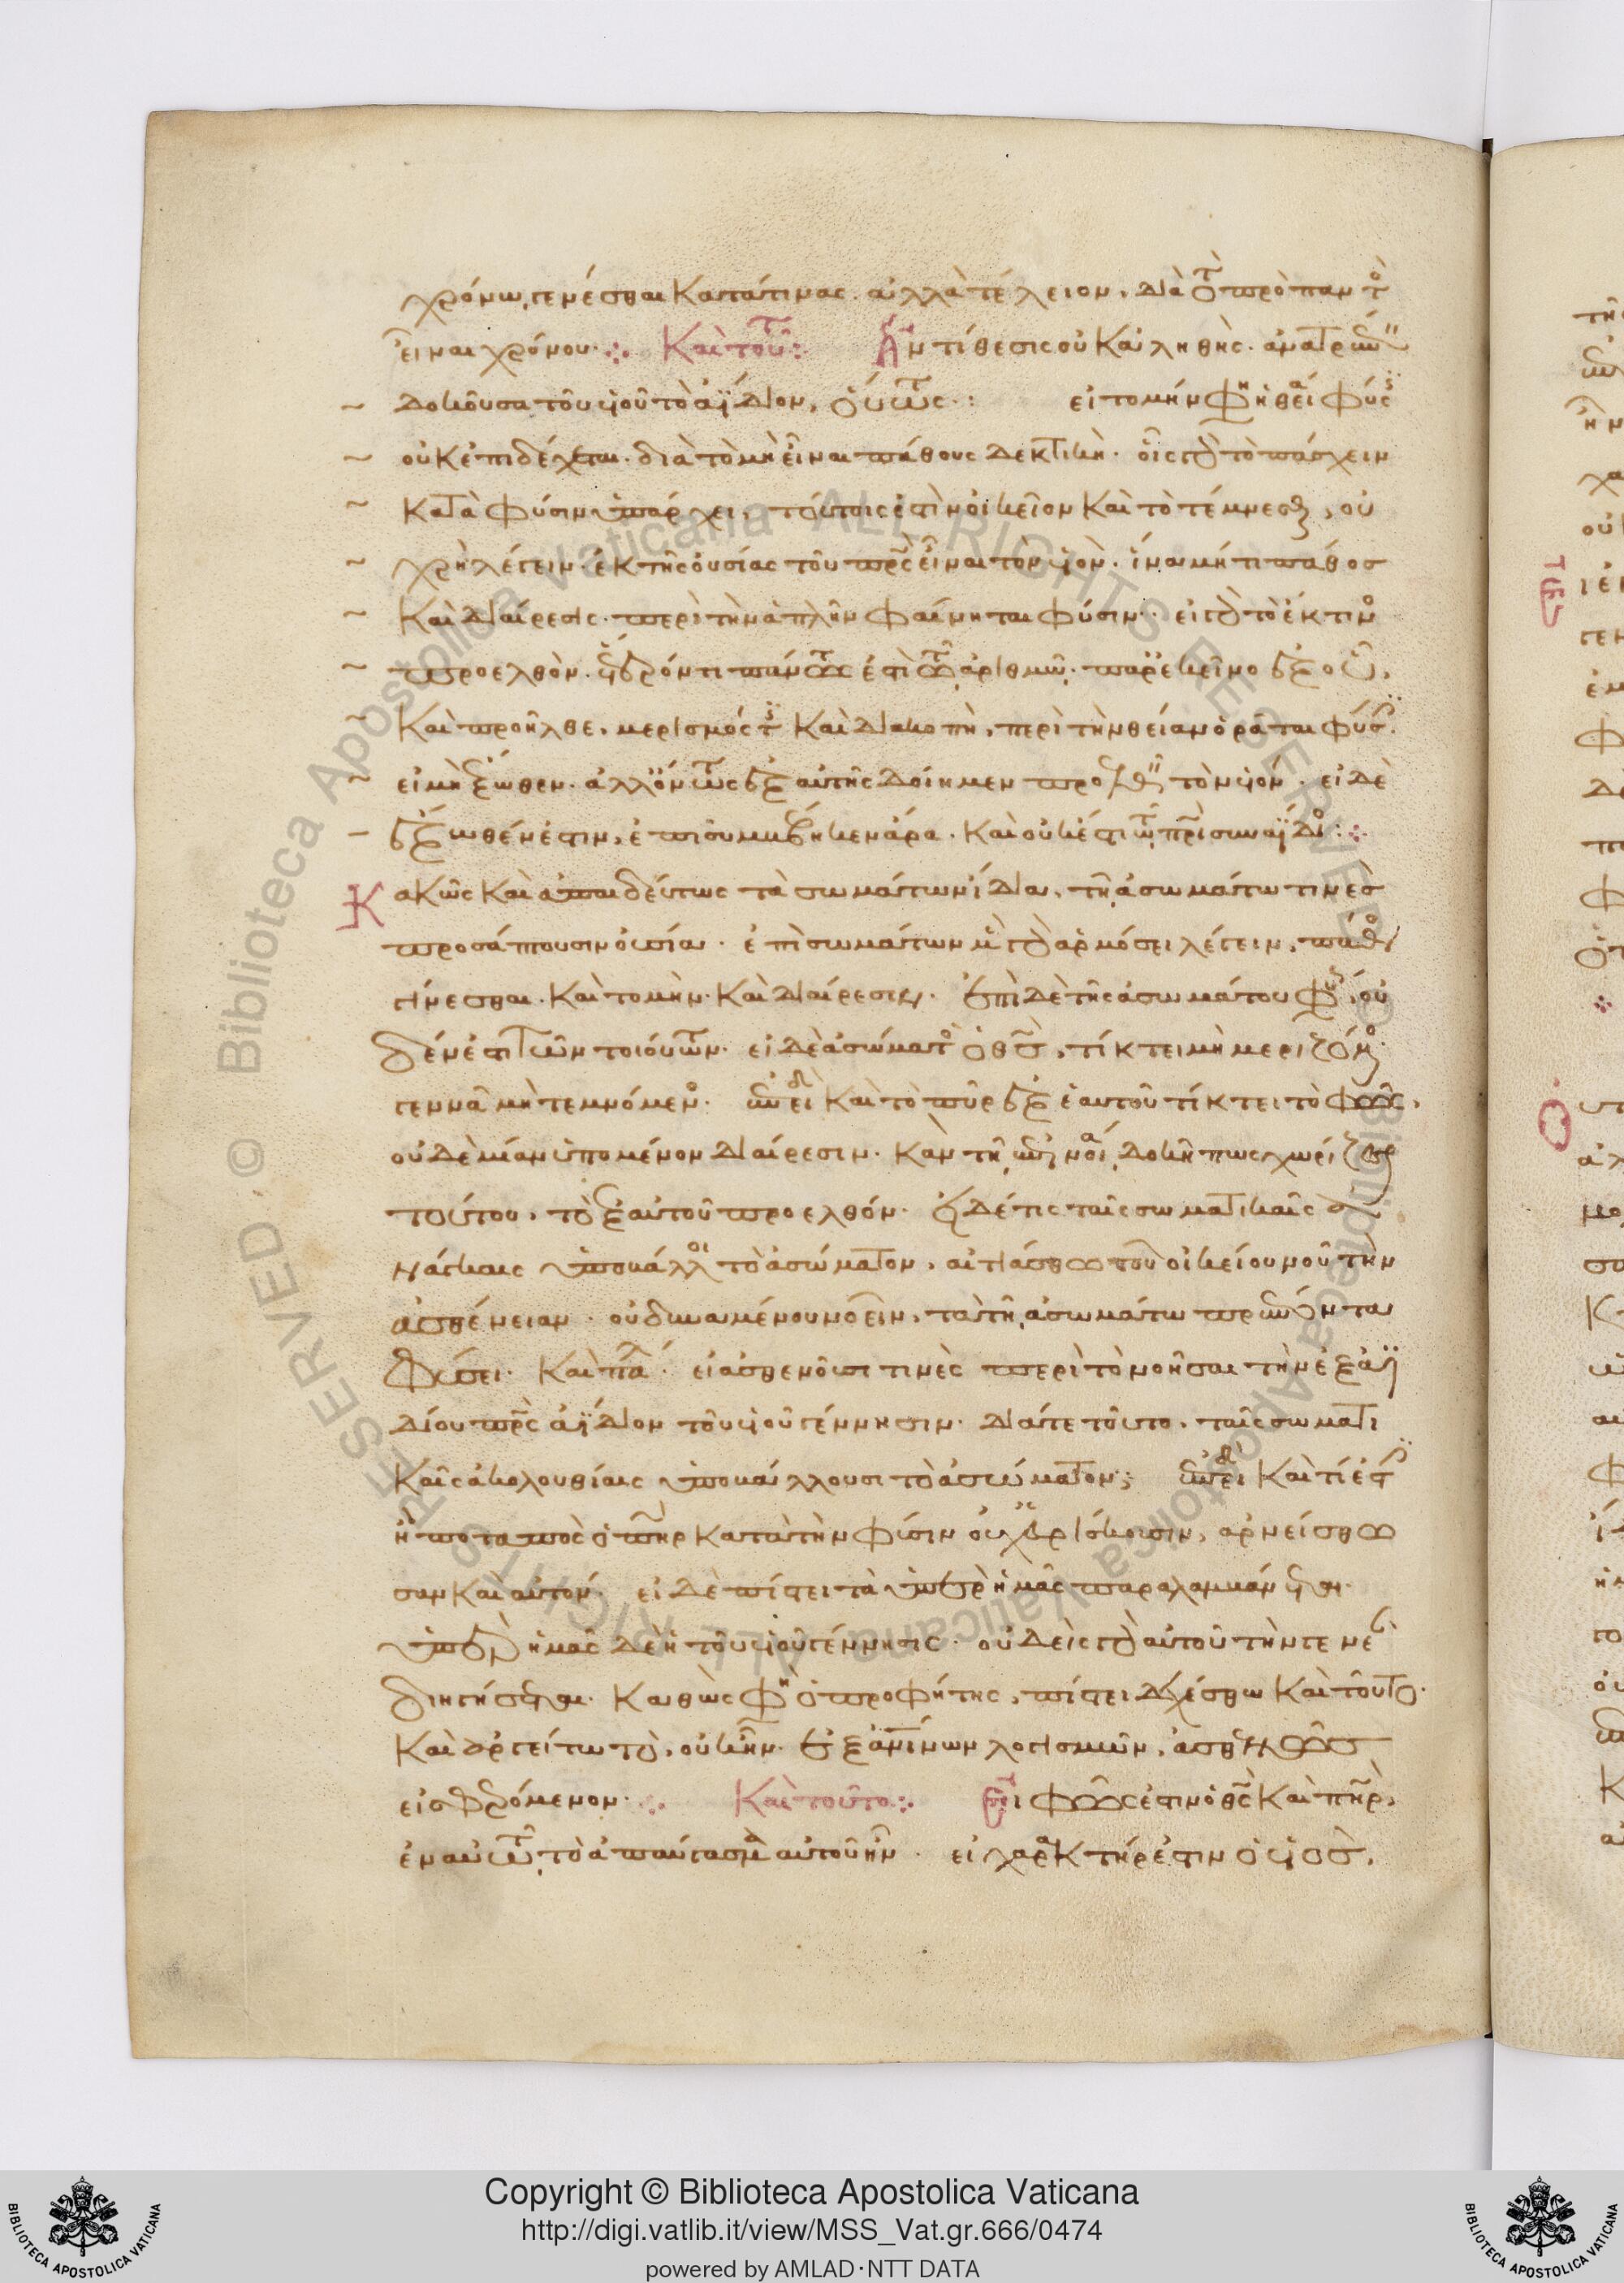 χρόνω, γενέσθαι κατά τινας. ἀλλὰ τέλειον, διὰ τὸ πρὸ παντὸς
εἶναι χρόνου ⁘ Καὶ τοῦτο: Ἀντίθεσις οὐκ ἀληθής. ἀνατρέπειν
δοκοῦσα τοῦ υἱοῦ τὸ ἀΐδιον, οὕτως: εἰ τομήν φησιν ἡ θεία φύσις
οὐκ ἐπιδέχεται. διὰ τὸ μὴ εἶναι πάθους δεκτική. οἷς γὰρ τὸ πάσχειν
κατὰ φύσιν ὑπάρχει, τούτοις ἐστὶν οἰκεῖον καὶ τὸ τέμνεσθαι, οὐ
χρὴ λέγειν. ἐκ τῆς οὐσίας τοῦ πατρὸς εἶναι τὸν υἱόν. ἵνα μήτι πάθος
καὶ διαίρεσις. περὶ τὴν ἁπλῆν φαίνηται φύσιν. εἰ γὰρ τὸ ἔκ τινος
προελθὸν. ἕτερόν τι πάντως ἐστὶ τῶ ἀριθμῶ. παρ' ἐκεῖνο ἐξ οὗ,
καὶ προῆλθε, μερισμός τις καὶ διακοπὴ, περὶ τὴν θείαν ὁρᾶται φύσιν.
εἰ μὴ ἔξωθεν. ἀλλ' ὄντως ἐξ αὐτῆς δοίημεν προελθεῖν τὸν υἱόν. εἰ δὲ
ἔξωθέν ἐστιν, ἐπισυμβέβηκεν ἄρα. καὶ οὐκ ἔστι τῶ πατρὶ συναΐδιος ⁘
Κακῶς καὶ ἀπαιδεύτως τὰ σωμάτων ἴδια, τῆ ἀσωμάτω τινὲς
προσάπτουσιν οὐσία. ἐπὶ σωμάτων μὲν γὰρ ἁρμόσει λέγειν, πάθος
γίνεσθαι. καὶ τομὴν. καὶ διαίρεσιν. ἐπὶ δὲ τῆς ἀσωμάτου φύσεως, οὐ
δέν ἐστι τῶν τοιούτων. εἰ δὲ ἀσώματος ὁ θεός, τίκτει μὴ μεριζόμενος.
γεννᾶ μὴ τεμνόμενος. ἐπεὶ καὶ τὸ πῦρ ἐξ ἑαυτοῦ τίκτει τὸ φῶς,
οὐδεμίαν ὑπομένον διαίρεσιν. κἂν τῆ ἐπινοία, δοκῆ πως χωρίζεσθαι
τούτου, τὸ ἐξ αὐτοῦ προελθόν. εἰ δέ τις ταῖς σωματικαῖς ἀ
νάγκαις ὑποβάλλοι τὸ ἀσώματον, αἰτιάσθω τοῦ οἰκείου νοῦ τὴν
ἀσθένειαν. οὐ δυναμένου νοεῖν, τὰ τῆ ἀσωμάτω πρέποντα
φύσει. Καὶ πάλιν. εἰ ἀσθενοῦσί τινὲς περὶ τὸ νοῆσαι τὴν ἐξ ἀϊ
δίου πατρὸς ἀΐδιον τοῦ υἱοῦ γέννησιν. διά τε τοῦτο, ταῖς σωματι
καῖς ἀκολουθίαις ὑποβάλλουσι τὸ ἀσώματον; ἐπεὶ καὶ τί ἐστιν
ἢ ποταπὸς ὁ πατὴρ κατὰ τὴν φύσιν οὐχ εὑρίσκουσιν, ἀρνείσθω
σαν καὶ αὐτόν. εἰ δὲ πίστει τὰ ὑπὲρ ἡμᾶς παραλαμβάνεται.
ὑπὲρ ἡμᾶς δὲ ἡ τοῦ υἱοῦ γέννησις. οὐδεὶς γὰρ αὐτοῦ τὴν γενεὰν
διηγήσεται. καθώς φησιν ὁ προφήτης, πίστει δεχέσθω καὶ τοῦτο.
καὶ ἀργείτω τὸ, οὐκ ἦν. ἐξ ἀνθρωπίνων λογισμῶν, ἀσθενῶς
εἰσφερόμενον ⁘ Καὶ τοῦτο: Εἰ φῶς ἐστιν ὁ θεὸς καὶ πατὴρ,
ἐν αὐτῶ τὸ ἀπαύγασμα αὐτοῦ ἦν. εἰ χαρακτήρ ἐστιν ὁ υἱός,
Copyright © Biblioteca Apostolica Vaticana
http://digi.vatlib.it/view/MSS_Vat.gr.666/0474
powered by AMLAD·NTT DATA